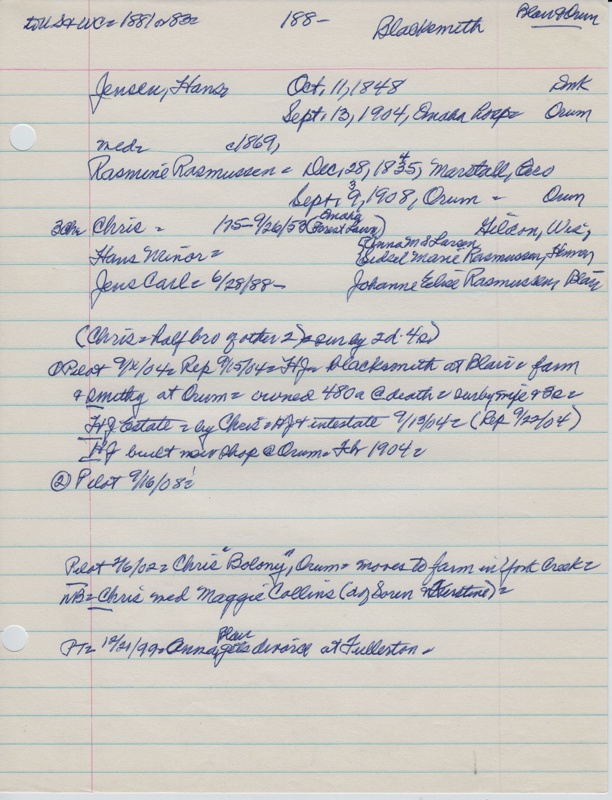 to U.S. & WC = 1881 or 83 = 188- Blacksmith Blair & Orum
Jensen, Hans Oct, 11, 1848 Dmk
Sept. 13, 1904, Omaha Hosp = Orum
med = c1869,
Rasmine Rasmussen = Dec, 28, 1835, Marstall,
4
Sept, 9, 1908, Orum = Orum
3
3 Ch = Chris = 175-9/26/53 (Forest Lawn) Wis,
Omaha
Hans Minor = Sidsel Marie Rasmussen, Henry
Anna M S Larsen
Jens Carl = 6/28/88- Johanne Elise Rasmussen, Blair
(Chris = half bro of other 2) = sur by 2d. 4s)
① Pilot Rep 9/15/04 = HJ = blacksmith at Blair = farm
& smithy at Orum = owned 480a @ death = sur by wife & 3s =
HJ Estate = by Chris = HJ + intestate 9/13/04 = (Rep 9/22/04)
HJ built new shop @ Orum = Feb 1904 =
② Pilot 9/16/08 =
Pilot 2/6/02 = Chris "Bolony", Orum = moves to farm in York Creek =
NB = Chris med Maggie Collins (d of Soren & Kirstine) =
Blair
PT = 12/21/99 = Anna gets divorce at Fullerton =